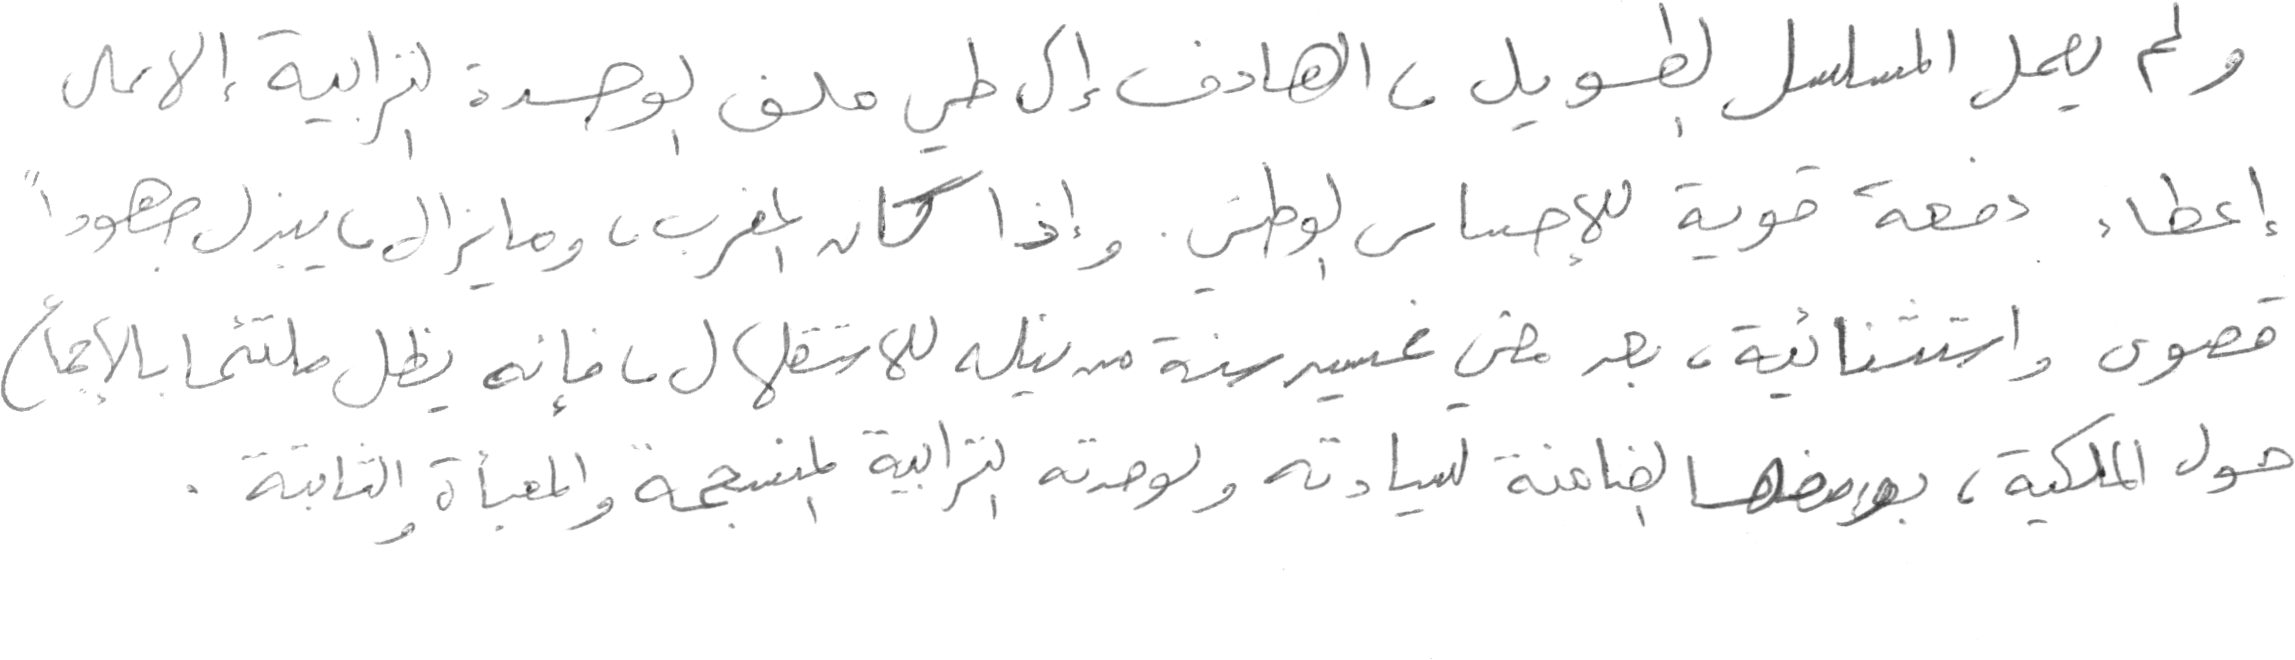 ولم يعمل المسلسل الطويل، الهادف إلى طي ملف الوحدة الترابية إلا على
إعطاء دفعة قوية للإحساس الوطني. وإذا كان المغرب، وما يزال، يبذل جهوداً
قصوى واستثنائية، بعد مضي خمسين سنة من نيله للاستقلال، فإنه يظل ملتئما بالإجماع
حول الملكية، بوصفها الضامنة لسيادته ولوحدته الترابية المنسجمة والمعبأة والثابتة.